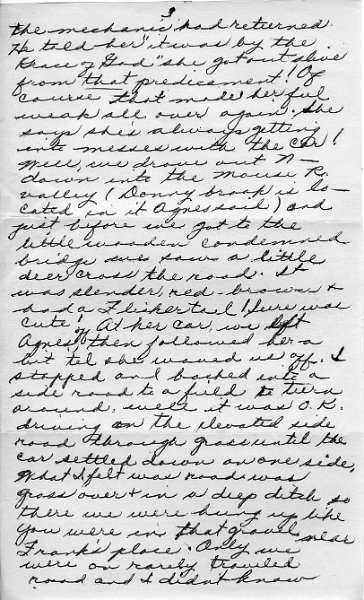 3
the mechanic had returned.
He told her "it was by the
Grace of God" she got out alive
from that predicament! Of
course that made her feel
weak all over again. She
says she's always getting
into messes with the car!
Well, we drove out N—
down into the Mouse R.
valley (Donnybrook is lo-
cated in it Agnes said) and
just before we got to the
little wooden condemned
bridge we saw a little
deer cross the road. It
was slender, red-brown &
had a flicker tail! Sure was
cute! At her car, we left
Agnes, then followed her a
bit 'til she waved us off. I
stopped and backed into a
side road to a field to turn
around, well it was O.K.
driving on the elevated side
road through grass until the
car settled down on one side,
What I felt was road was
grass over & in a deep ditch so
there we were hung up like
you were in that gravel near
Frank's place. Only we
were on rarely traveled
road and I didn't know